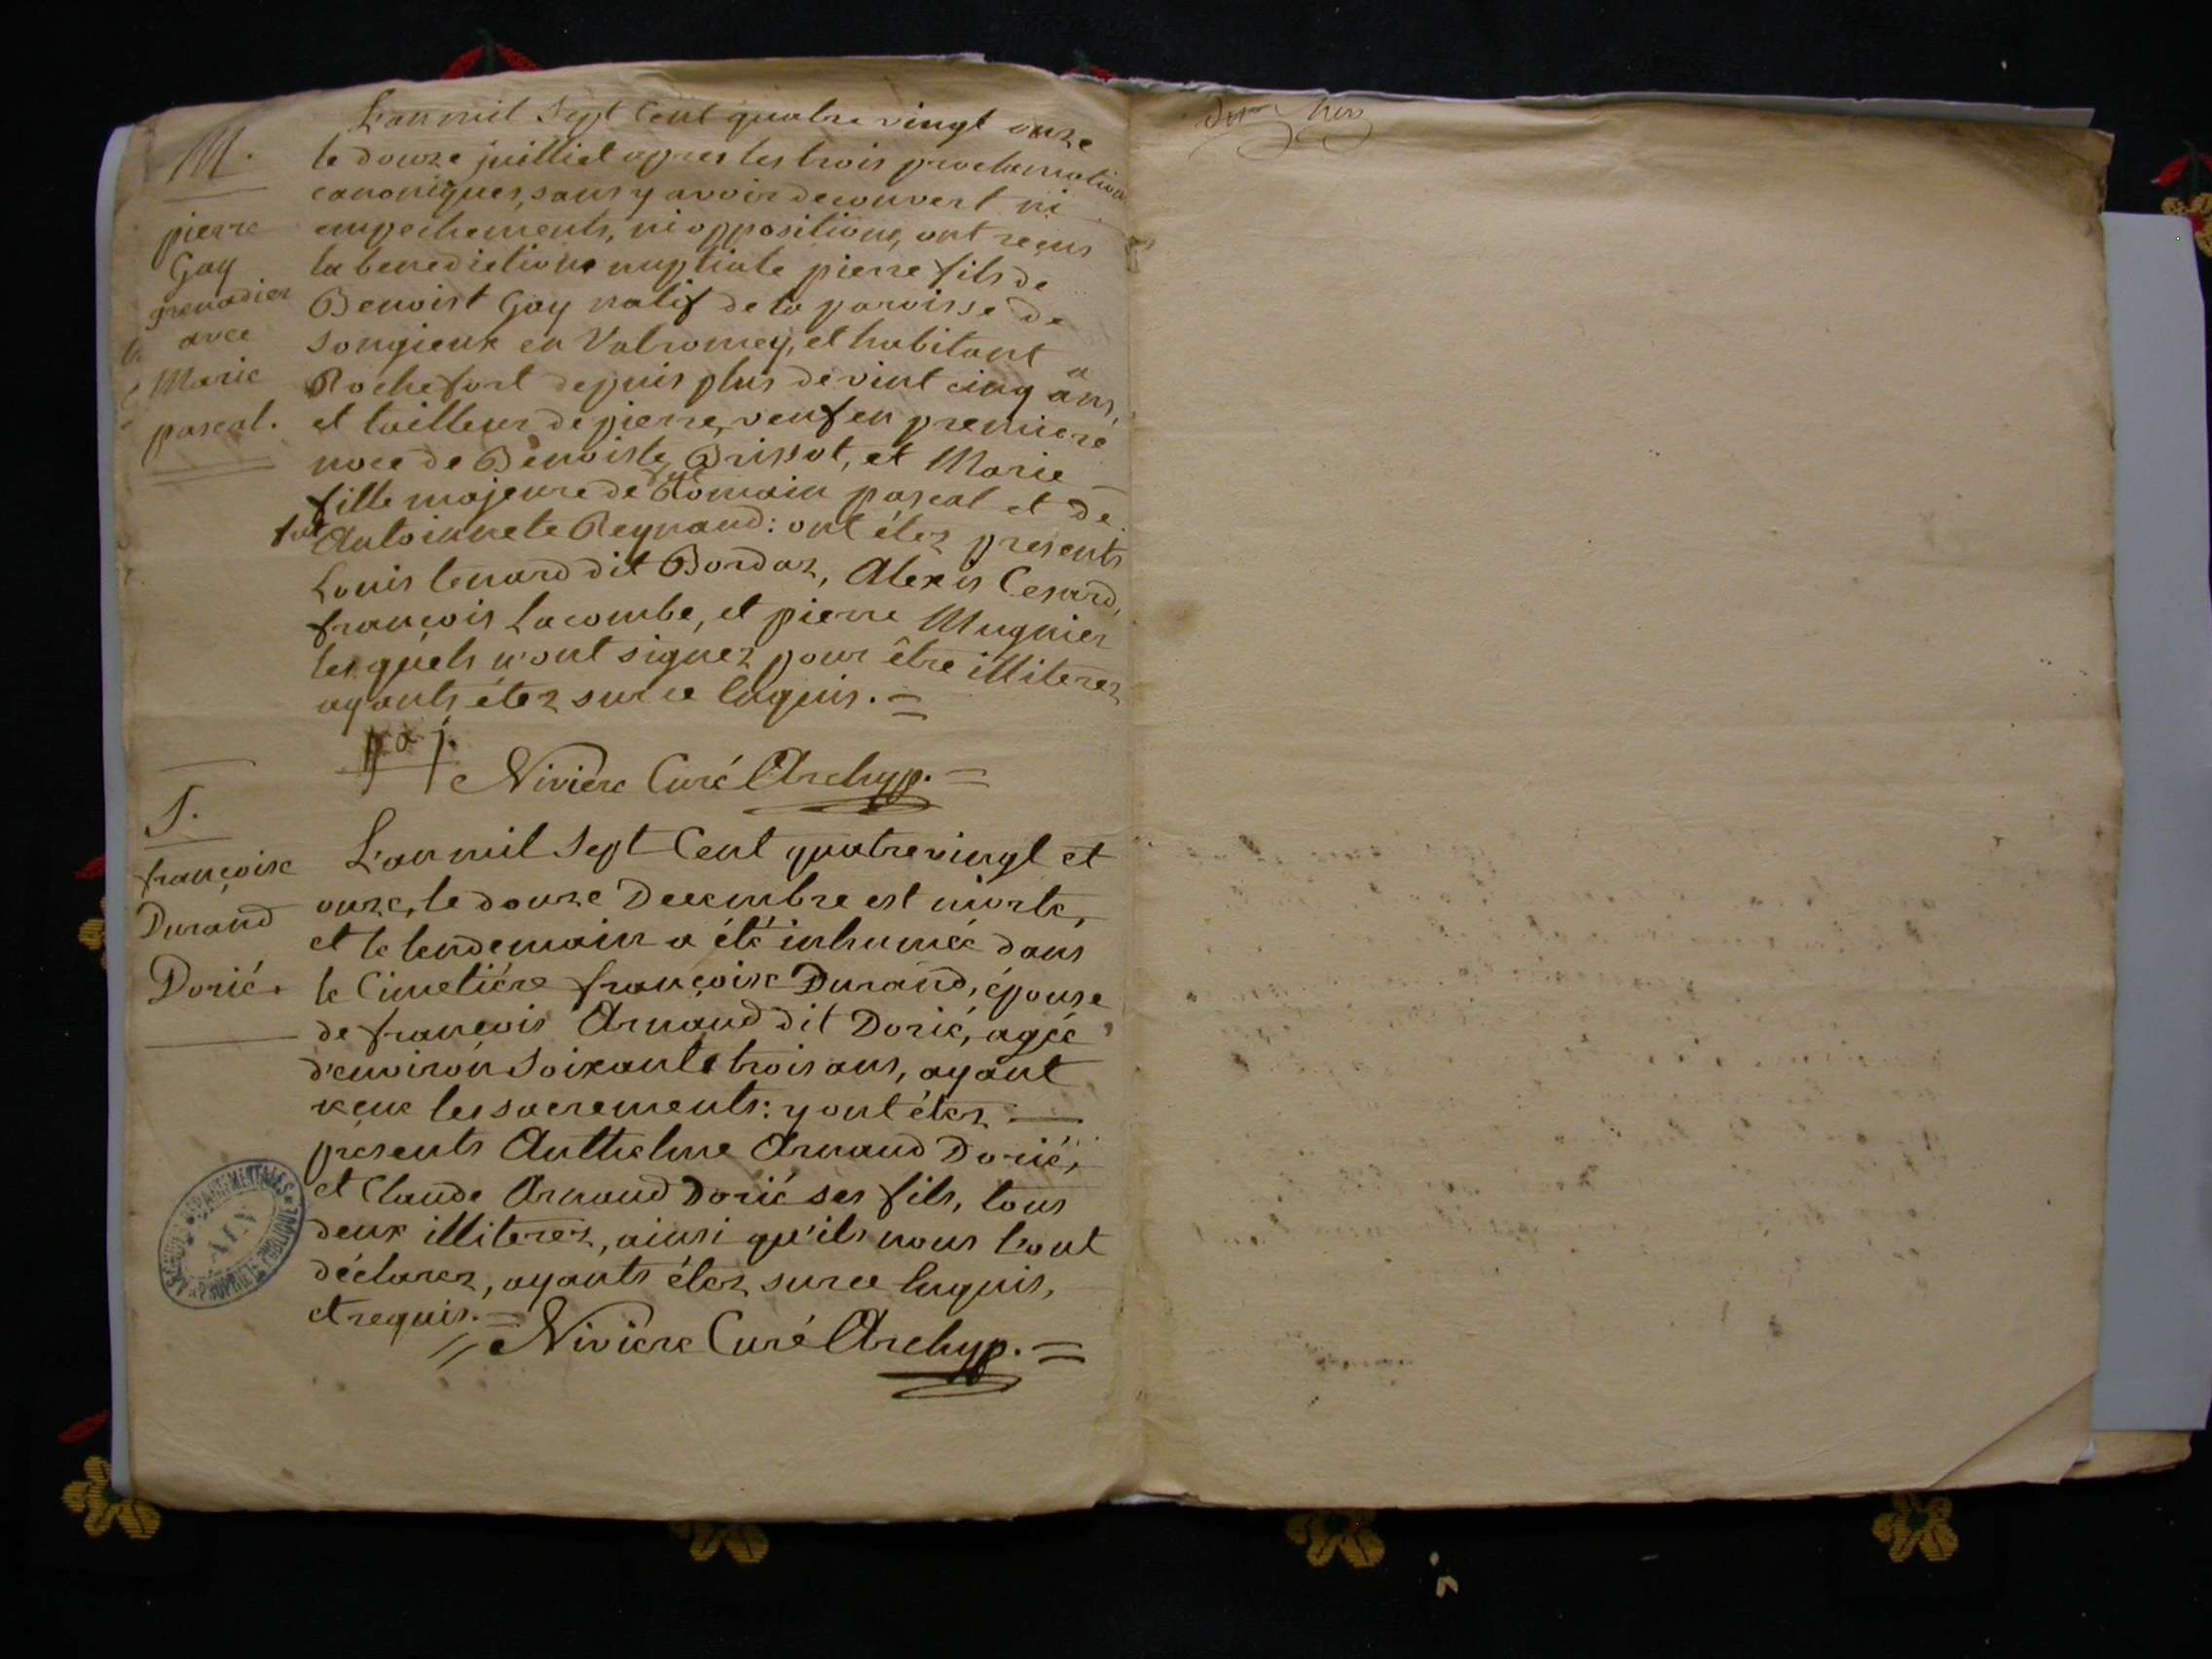 M.
pierre
Gay
grenadier
avec
Marie
pascal.
L'an mil Sept Cent quatre vingt onze
le douze juilliet apres les trois proclamation
canoniques, sans y avoir decouvert ni
empechements, ni oppositions, ont reçus
la benediction nuptiale pierre fils de
Benoist Gay natif de la paroisse de
Songieux en Valromey, et habitant a
Rochefort depuis plus de vint cinq ans,
et tailleur de pierre, veuf en premiere
noce de Benoiste Brissot, et Marie
fille majeure de feu Romain pascal et de
fut Antoinnete Reynaud: ont étez presents
Louis lenard dit Bordaz, Alexis Cesard,
françois Lacombe, et pierre Mugnier
lesquels n'ont signez pour être illiterez
ayants étez sur ce Enquis. =
Nivière Curé Archyp. =
S.
françoise
Durand
Dorié.
L'an mil Sept Cent quatrevingt et
onze, le douze Decembre est morte,
et le lendemain a été inhumée dans
le Cimetiére françoise Durand, épouse
de françois Arnaud dit Dorié, agée
d'environ Soixante trois ans, ayant
reçue les sacrements: y ont étez
présents Anthelme Arnaud Dorié,
et Claude Arnaud Dorié ses fils, tous
deux illiterez, ainsi qu'ils nous l'ont
déclarez, ayants étez sur ce Enquis,
et requis. =
Nivière Curé Archyp. =
ARCHIVES DÉPARTEMENTALES
AIN
PROPRIÉTÉ PUBLIQUE